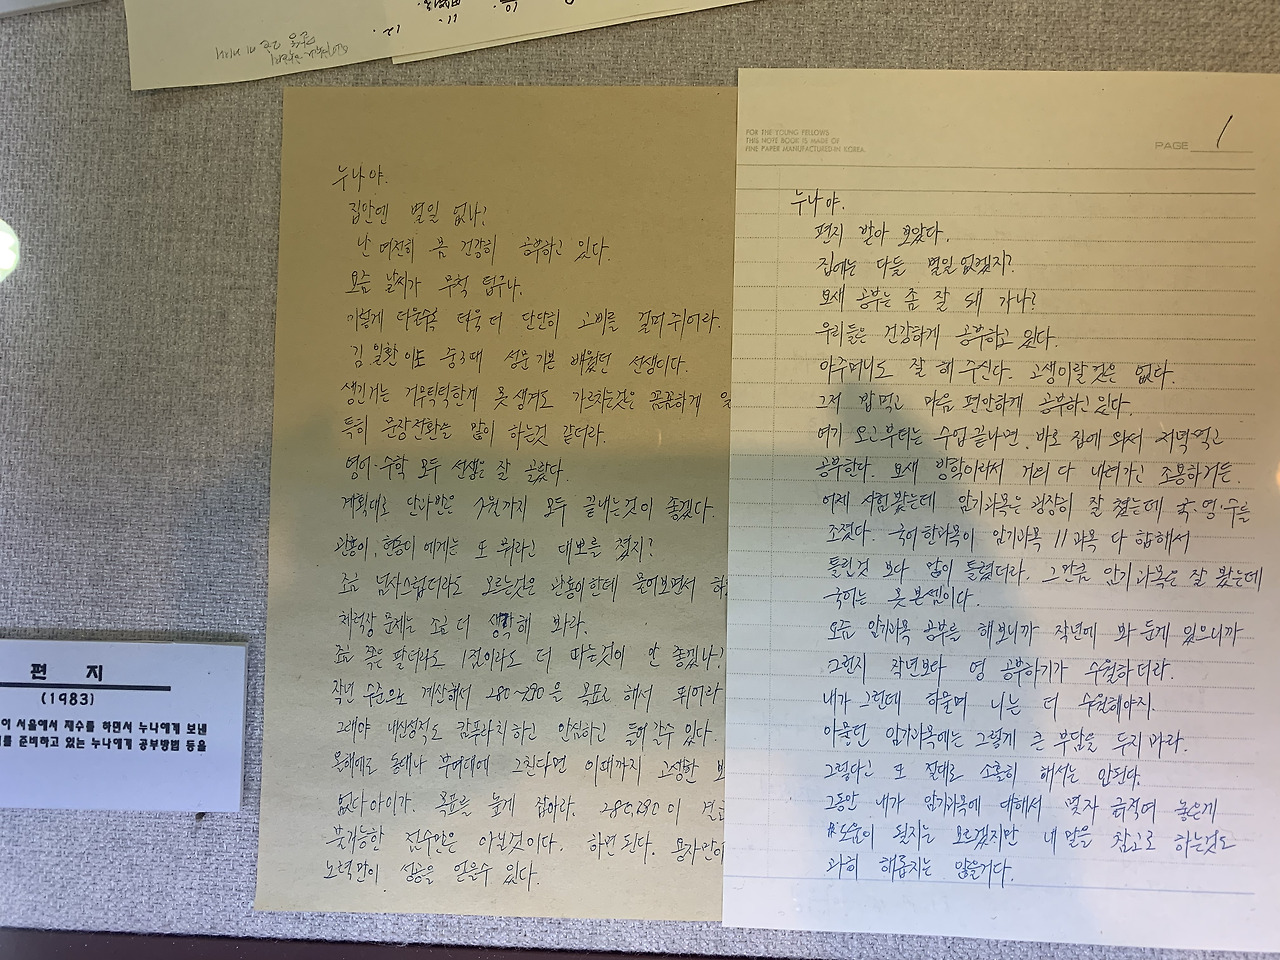 누나야.
집안엔 별일 없나?
난 여전히 몸 건강히 공부하고 있다.
요즘 날씨가 무척 덥구나.
이렇게 더울수록 더욱 더 단단히 고삐를 걸머쥐어라.
김일환이도 중3때 성문기본 배웠던 선생이다.
생긴거는 거무틱틱한게 못생겨도 가르치는것은 꼼꼼하게
특히 문장전환을 많이 하는것 같더라.
영어·수학 모두 선생은 잘 골랐다.
계획대로 단과반은 7월까지 모두 끝내는것이 좋겠다.
관홍이, 현홍이에게는 또 뭐라고 대보를 쳤지?
조금 남사스럽더라도 모르는것은 관홍이한테 물어보면서
체력장 문제는 조금 더 생각해 봐라.
조금 쪽은 팔더라도 1점이라도 더 따는것이 안 좋겠나?
작년 수준으로 계산해서 280~290을 목표로 해서 뛰어라
그래야 내신성적도 캄푸라치하고 안심하고 들어갈수 있다.
올해에도 동대나 부여대에 그친다면 이때까지 고생한
없다아이가. 목표를 높게 잡아라. 280, 290이
불가능한 점수만은 아닐것이다. 하면 된다.
노력만이 성공을 얻을수 있다.
FOR THE YOUNG FELLOWS
THIS NOTE BOOK IS MADE OF
FINE PAPER MANUFACTURED IN KOREA.
PAGE 1
누나야.
편지 받아 보았다.
집에는 다들 별일없겠지?
요새 공부는 좀 잘 돼 가나?
우리들은 건강하게 공부하고 있다.
아주머니도 잘 해 주신다. 고생이랄것은 없다.
그저 밥먹고 마음 편안하게 공부하고있다.
여기 오고부터는 수업끝나면 바로 집에 와서 저녁먹고
공부한다. 요새 방학이라서 거의 다 내려가고 조용하거든.
어제 시험봤는데 암기과목은 굉장히 잘 쳤는데 국·영·수를
조졌다. 국어한과목이 암기과목 11과목 다 합해서
틀린것 보다 많이 틀렸더라. 그만큼 암기과목은 잘 봤는데
국어는 못 본셈이다.
요즘 암기과목 공부를 해보니까 작년에 봐 둔게 있으니까
그런지 작년보다 영 공부하기가 수월하더라.
내가 그런데 하물며 니는 더 수월해야지.
아뭏던 암기과목에는 그렇게 큰 부담을 두지마라.
그렇다고 또 절대로 소홀히 해서는 안된다.
그동안 내가 암기과목에 대해서 몇자 긁적여 놓은게
도움이 될지는 모르겠지만 내 말을 참고로 하는것도
과히 해롭지는 않을거다.
편 지
(1983)
이 서울에서 재수를 하면서 누나에게 보낸
를 준비하고 있는 누나에게 공부방법 등을